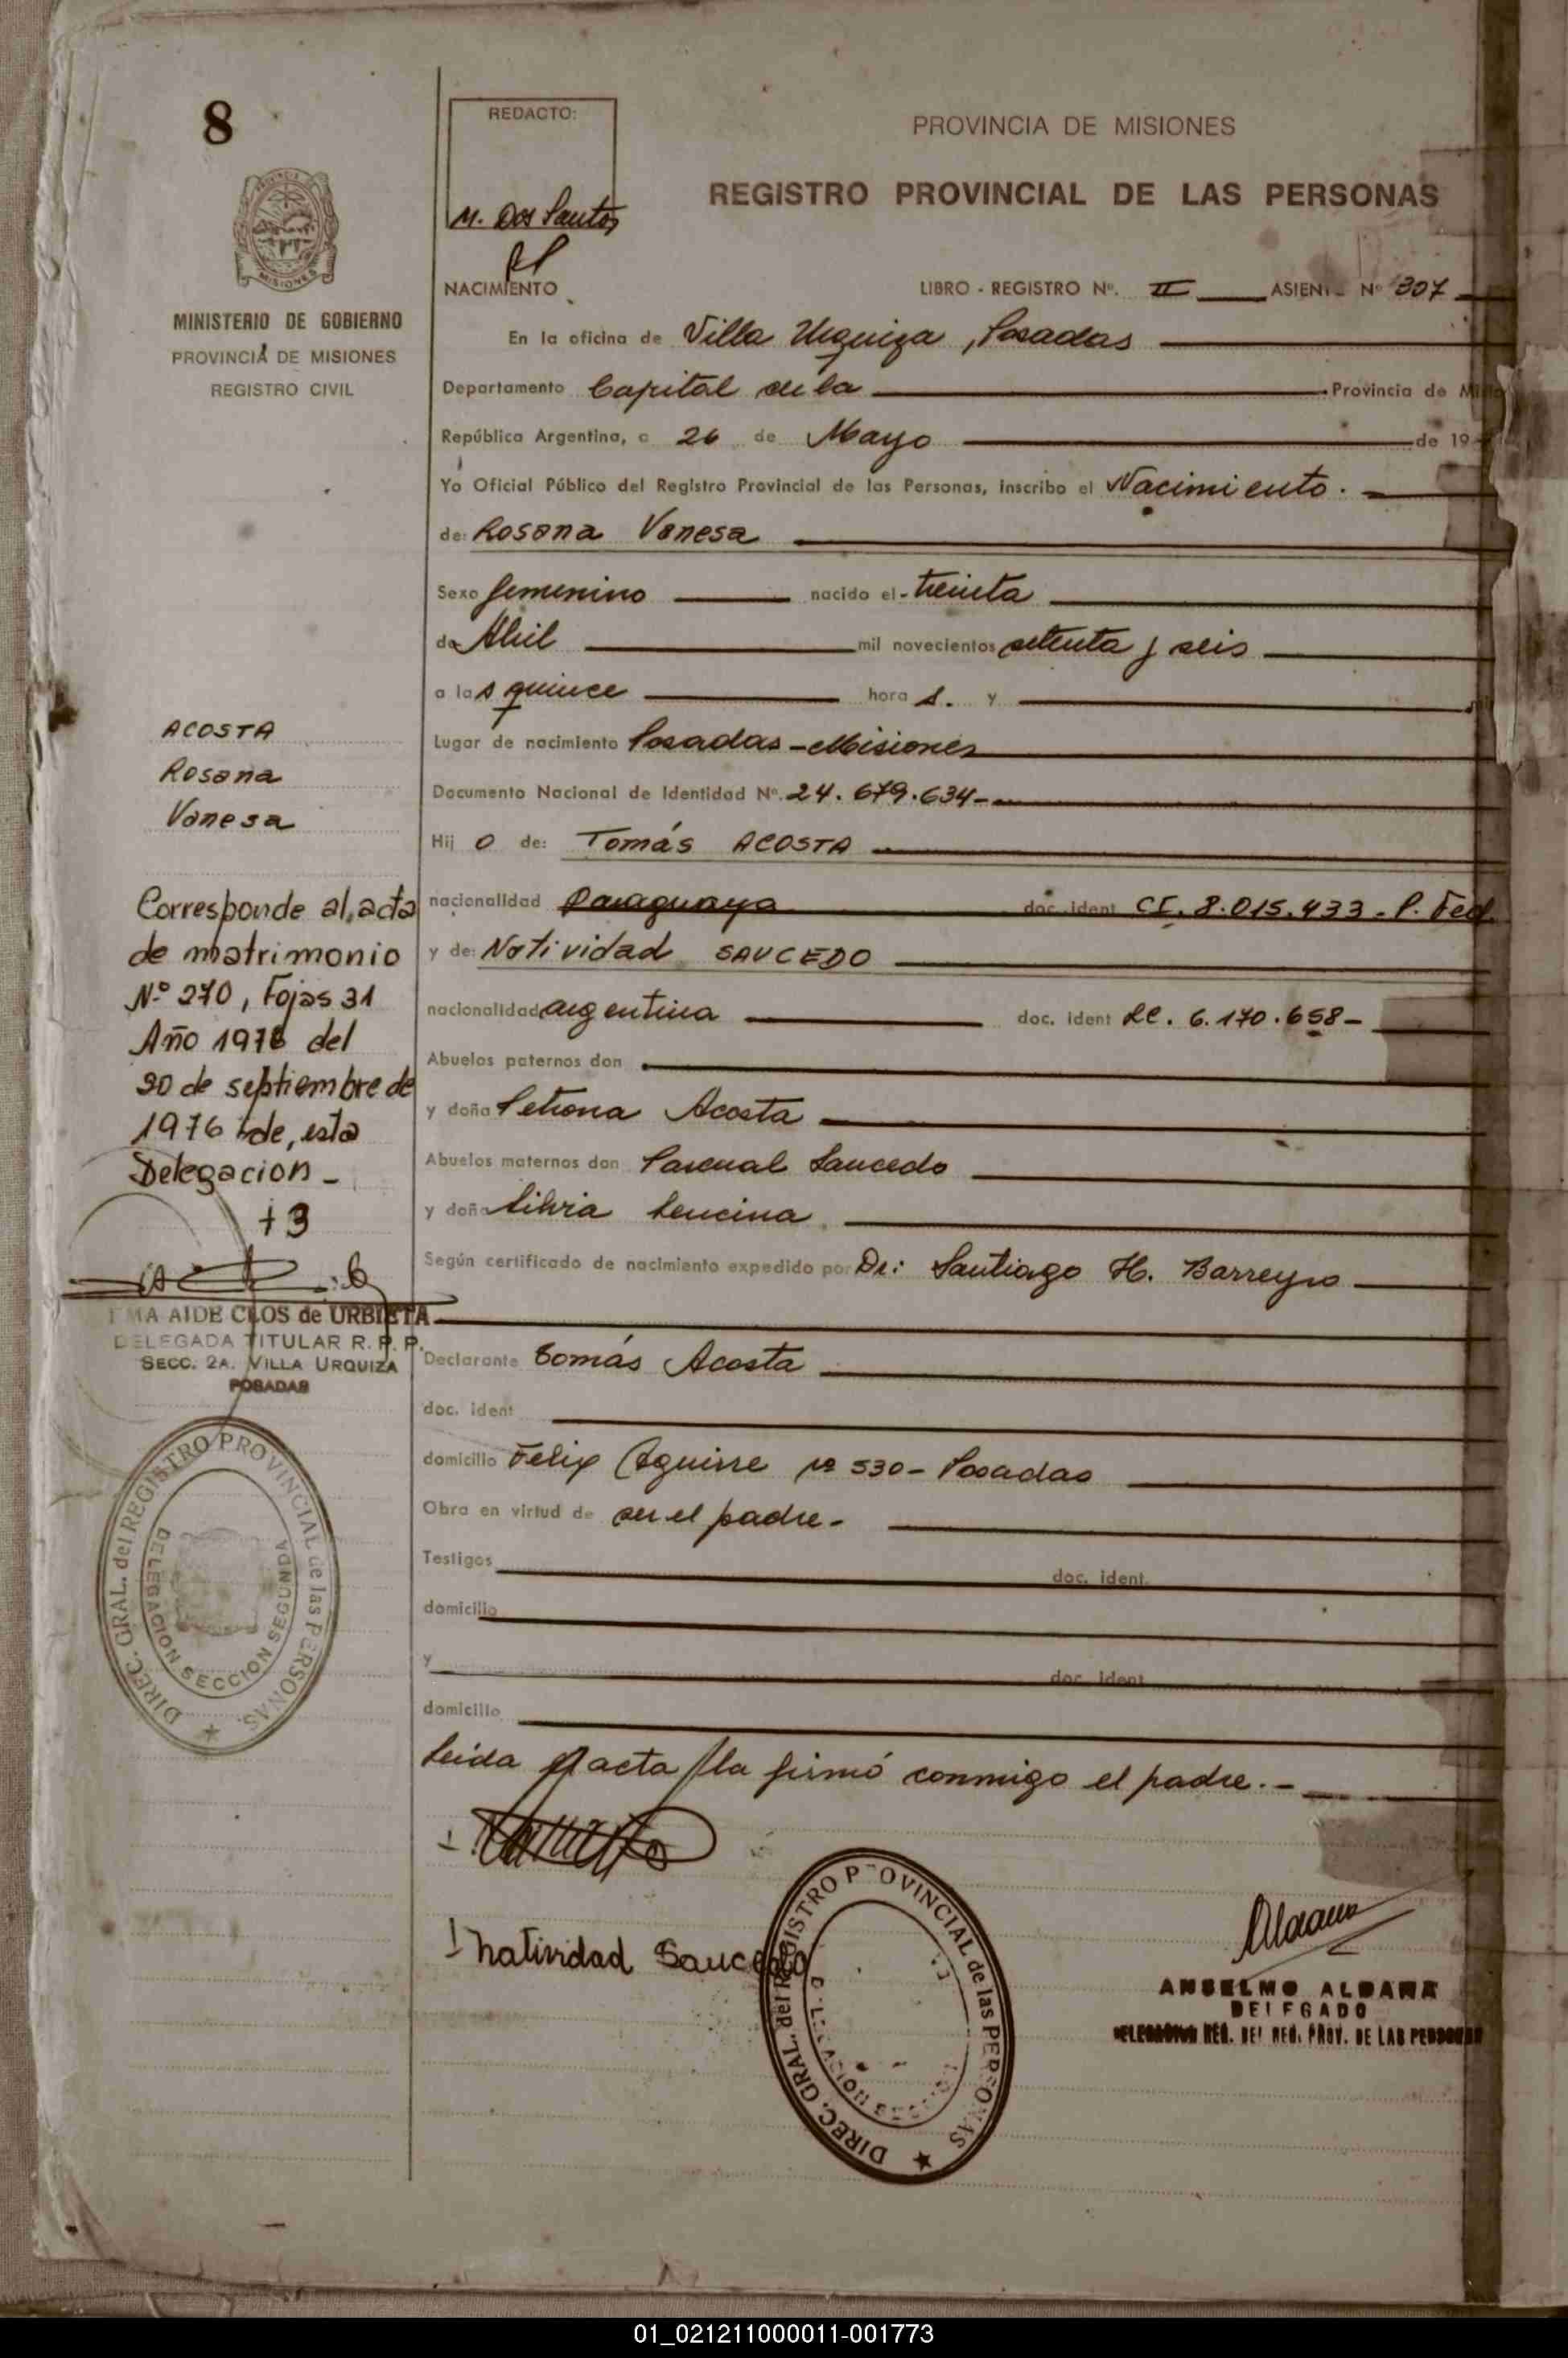 8
REDACTO:
M. Dos Santos
PROVINCIA DE MISIONES
REGISTRO PROVINCIAL DE LAS PERSONAS
PROVINCIA
MISIONES
MINISTERIO DE GOBIERNO
PROVINCIA DE MISIONES
REGISTRO CIVIL
NACIMIENTO
LIBRO - REGISTRO Nº. II ASIEN Nº 307
En la oficina de Villa Urquiza, Posadas
Departamento Capital de la Provincia de
República Argentina, a 26 de Mayo de 19
Yo Oficial Público del Registro Provincial de las Personas, inscribo el Nacimiento.
de: Rosana Vanesa
Sexo femenino nacido el treinta
de Abril mil novecientos setenta y seis
a las quince hora s. y
Lugar de nacimiento Posadas - Misiones
Documento Nacional de Identidad Nº. 24.679.634-
Hij o de: Tomás ACOSTA
nacionalidad paraguaya doc. ident CI. 8.015.433 - P. Fed
y de: Natividad SAUCEDO
nacionalidad argentina doc. ident LC. 6.170.658-
Abuelos paternos don
y doña Petrona Acosta
Abuelos maternos don Pascual Saucedo
y doña Silvia Lencina
Según certificado de nacimiento expedido por Dr: Santiago H. Barreyro
Declarante Tomás Acosta
doc. ident
domicilio Felix Aguirre nº 530 - Posadas
Obra en virtud de ser el padre-
Testigos doc. ident.
domicilio
y doc. ident
domicilio
Leida el acta la firmó conmigo el padre.-
Natividad Saucedo
ACOSTA
Rosana
Vanesa
Corresponde al acta
de matrimonio
Nº 270, Fojas 31
Año 1976 del
30 de septiembre de
1976 de, esta
Delegacion -
+3
MA AIDE CLOS de URBIETA
DELEGADA TITULAR R. P. P.
SECC. 2A. VILLA URQUIZA
POSADAS
DIREC. GRAL. del REGISTRO PROVINCIAL de las PERSONAS.
DELEGACION SECCION SEGUNDA
DIREC. GRAL. del REGISTRO PROVINCIAL de las PERSONAS
Aldana
ANSELMO ALDANA
DELEGADO
DELEGACION REG. DEL REG. PROV. DE LAS PERSONAS
01_021211000011-001773